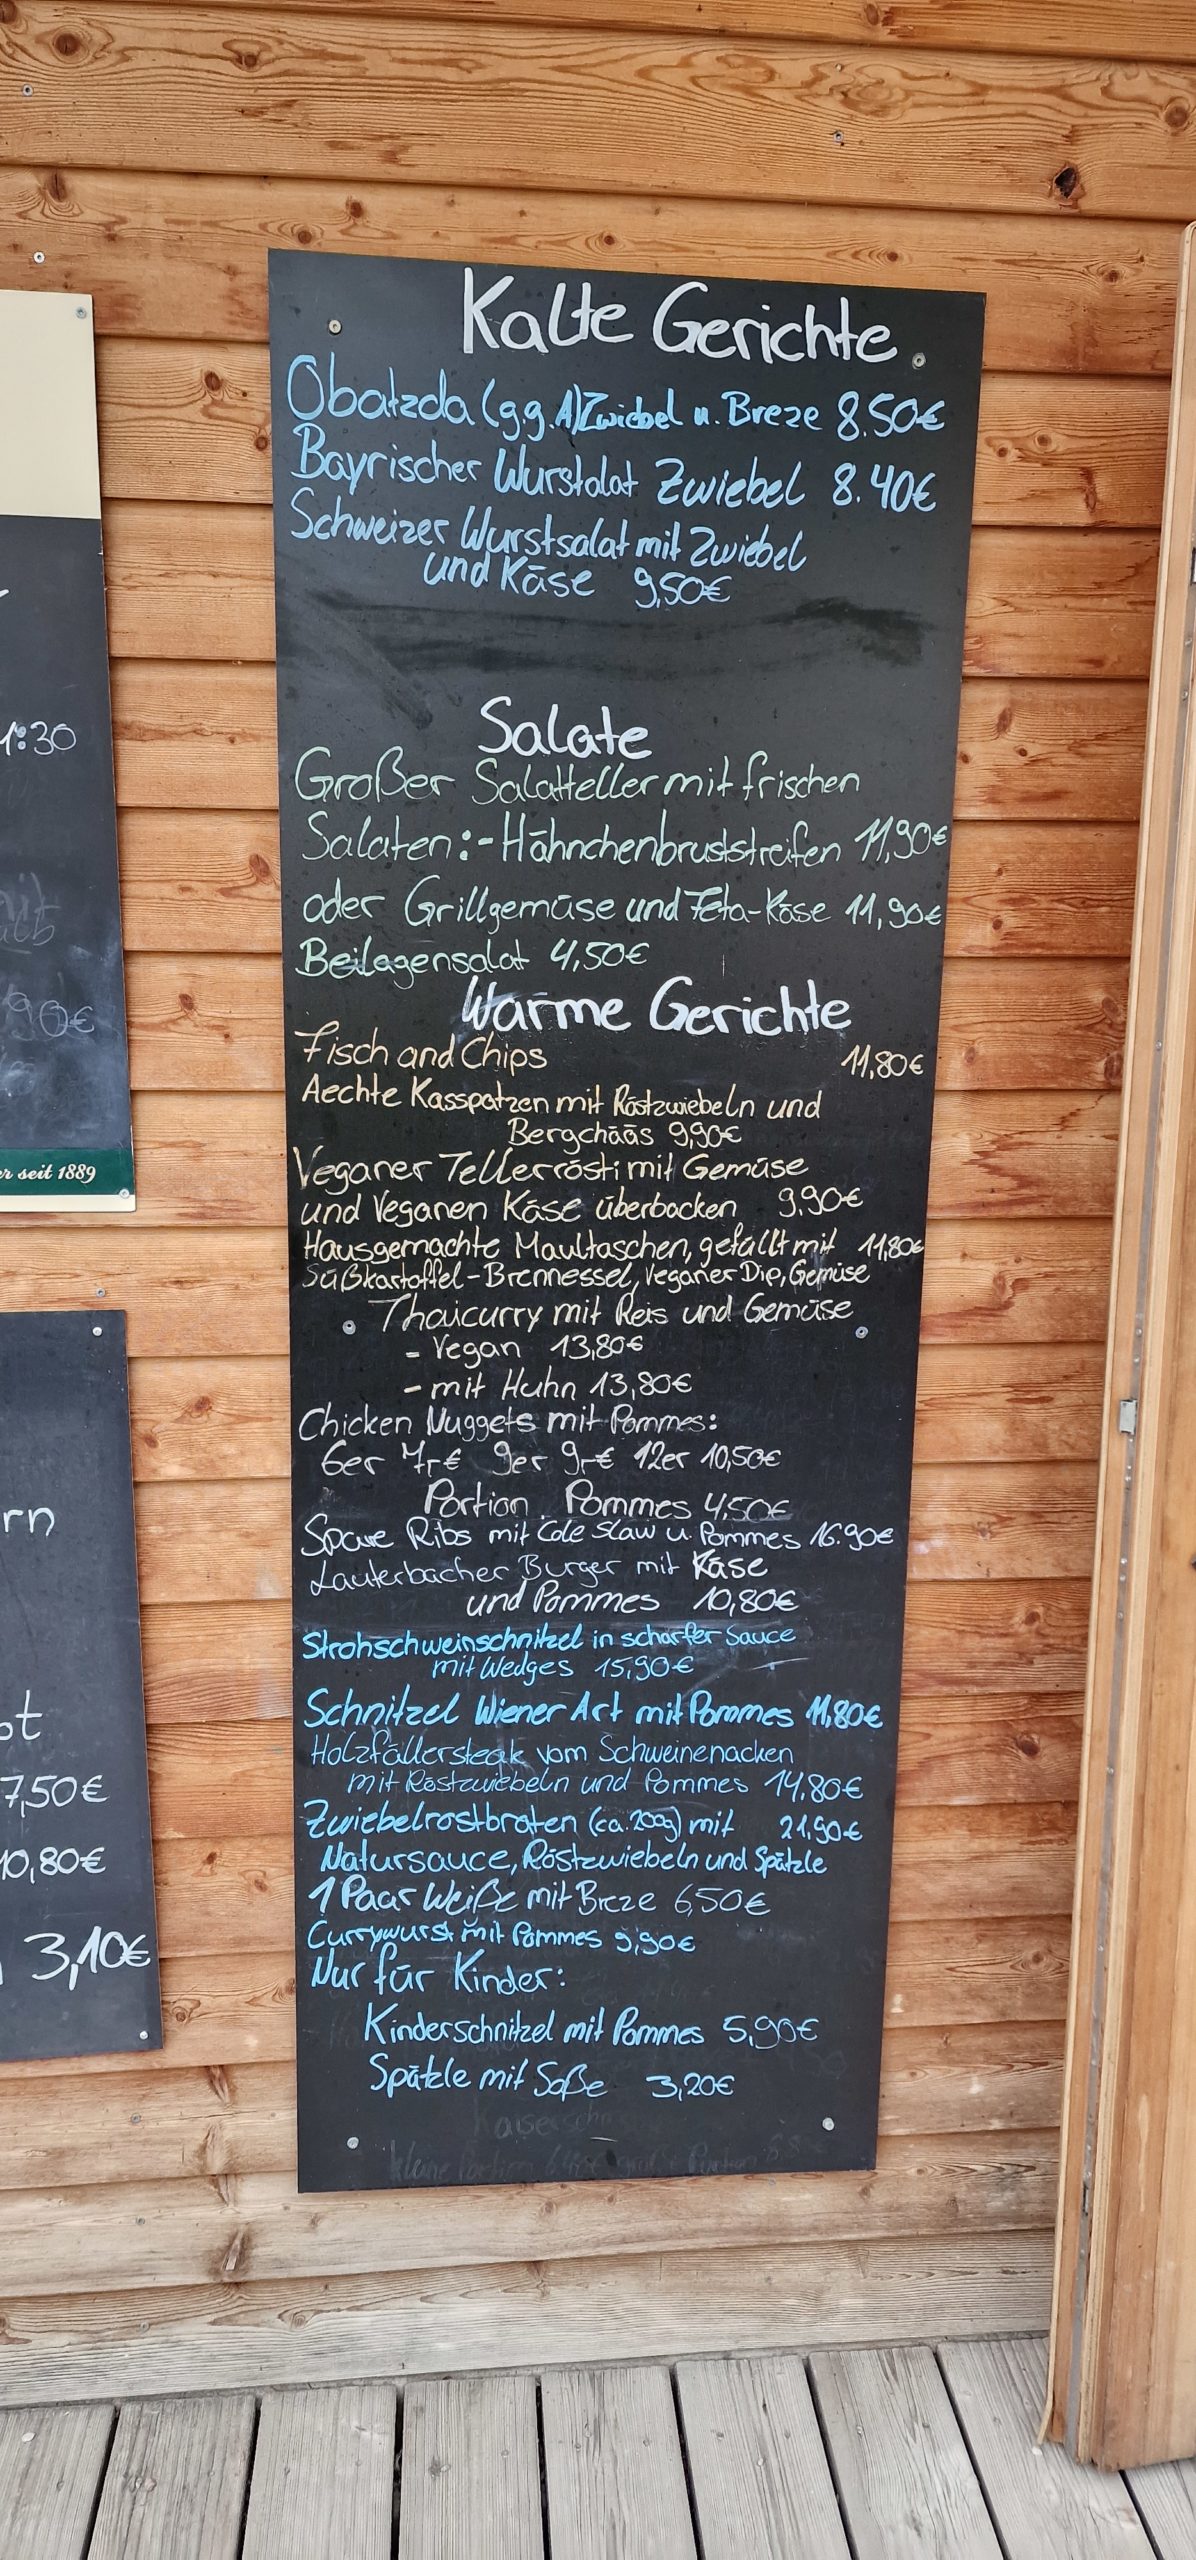 Kalte Gerichte
Obatzda (g.g.A) Zwiebel u. Breze 8.50€
Bayrischer Wurstalat Zwiebel 8.40€
Schweizer Wurstsalat mit Zwiebel
und Käse 9,50€
Salate
Großer Salatteller mit frischen
Salaten:- Hähnchenbruststreifen 11,90€
oder Grillgemüse und Feta-Käse 11,90€
Beilagensalat 4,50€
Warme Gerichte
Fisch and Chips 11,80€
Aechte Kasspatzen mit Röstzwiebeln und
Bergchääs 9,90€
Veganer Tellerrösti mit Gemüse
und Veganen Käse überbacken 9,90€
Hausgemachte Maultaschen, gefüllt mit 11,80€
Süßkartoffel-Brennessel, Veganer Dip, Gemüse
Thaicurry mit Reis und Gemüse
- Vegan 13,80€
- mit Huhn 13,80€
Chicken Nuggets mit Pommes:
6er 7,-€ 9er 9,-€ 12er 10,50€
Portion Pommes 4,50€
Spare Ribs mit Cole Slaw u. Pommes 16.90€
Lauterbacher Burger mit Käse
und Pommes 10,80€
Strohschweinschnitzel in scharfer Sauce
mit Wedges 15,90€
Schnitzel Wiener Art mit Pommes 11,80€
Holzfällersteak vom Schweinenacken
mit Röstzwiebeln und Pommes 14,80€
Zwiebelrostbraten (ca. 200g) mit 21,90€
Natursauce, Röstzwiebeln und Spätzle
1 Paar Weiße mit Breze 6,50€
Currywurst mit Pommes 9,90€
Nur für Kinder:
Kinderschnitzel mit Pommes 5,90€
Spätzle mit Soße 3,20€
1:30
90€
er seit 1889
rn
ot
7,50€
10,80€
3,10€